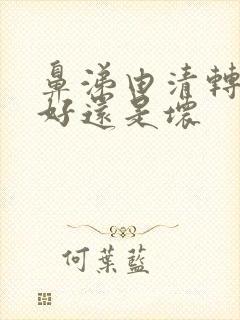 鼻涕由清轉
好還是壞
何葉藍